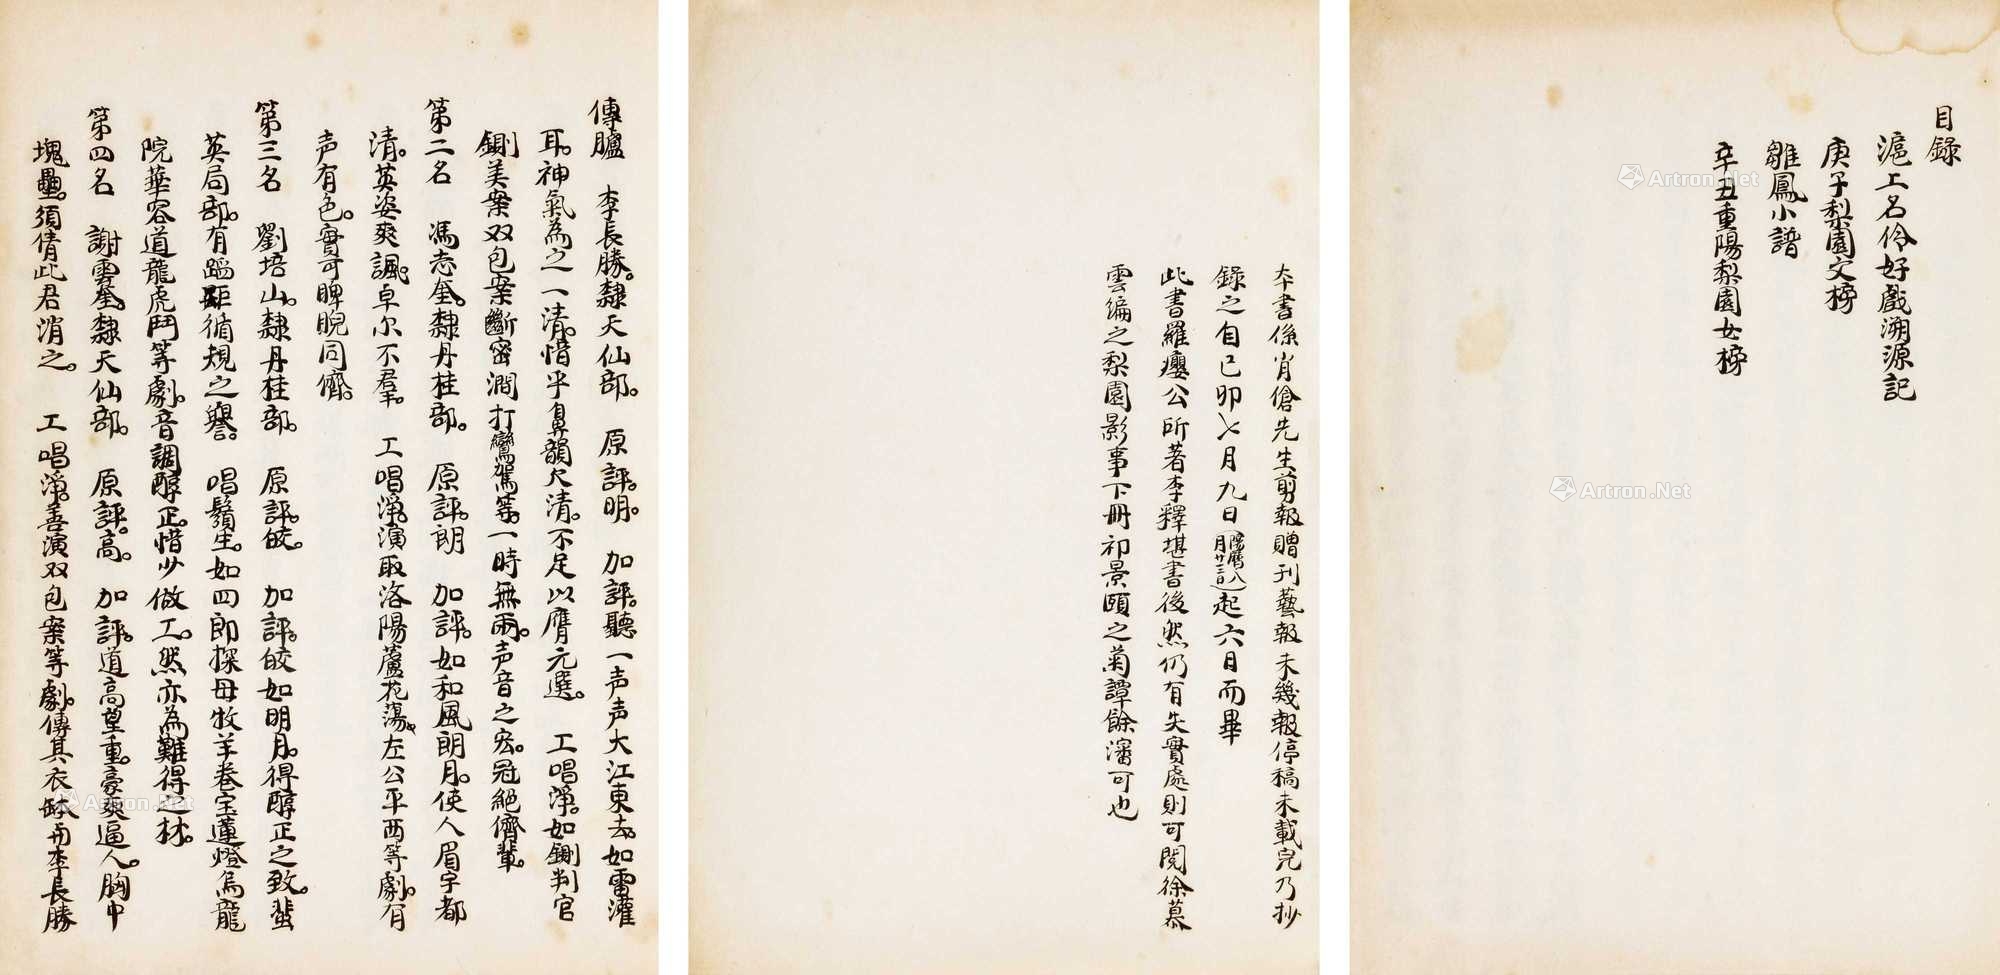 目錄
滬上名伶好戲溯源記
庚子梨園文榜
雛鳳小譜
辛丑重陽梨園女榜
本書係肖傖先生剪報贈刊藝報未幾報停稿未載完乃抄
錄之自己卯七月九日(陽曆八月廿三日)起六日而畢
此書羅癭公所著李釋堪書後然仍有失實處則可閱徐慕
雲編之梨園影事下冊和景頤之菊譚餘瀋可也
傳臚 李長勝。隸天仙部。 原評。明。 加評。聽一声声大江東去。如雷灌
耳。神氣為之一清。惜乎鼻韻欠清。不足以膺元選。 工唱淨。如鍘判官
鍘美案双包案斷密澗打鸞駕等。一時無兩。声音之宏。冠絕儕輩。
第二名 馮志奎。隸丹桂部。 原評。朗 加評。如和風朗月。使人眉宇都
清。英姿爽颯。卓尔不羣。 工唱淨。演取洛陽蘆花蕩。左公平西等劇。有
声有色。實可睥睨同儕。
第三名 劉培山。隸丹桂部。 原評。皎。 加評。皎如明月。得醇正之致。蜚
英局部。有蹈距循規之譽。 唱鬚生。如四郎探母牧羊卷宝蓮燈烏龍
院華容道龍虎鬥等劇。音調醇正。惜少做工。然亦為難得之材。
第四名 謝雲奎。隸天仙部。 原評。高。 加評。道高望重。豪爽逼人。胸中
塊壘。須倩此君消之。 工唱淨。善演双包案等劇。傳其衣缽而李長勝
Artron.Net
Artron.Net
Artron.Net